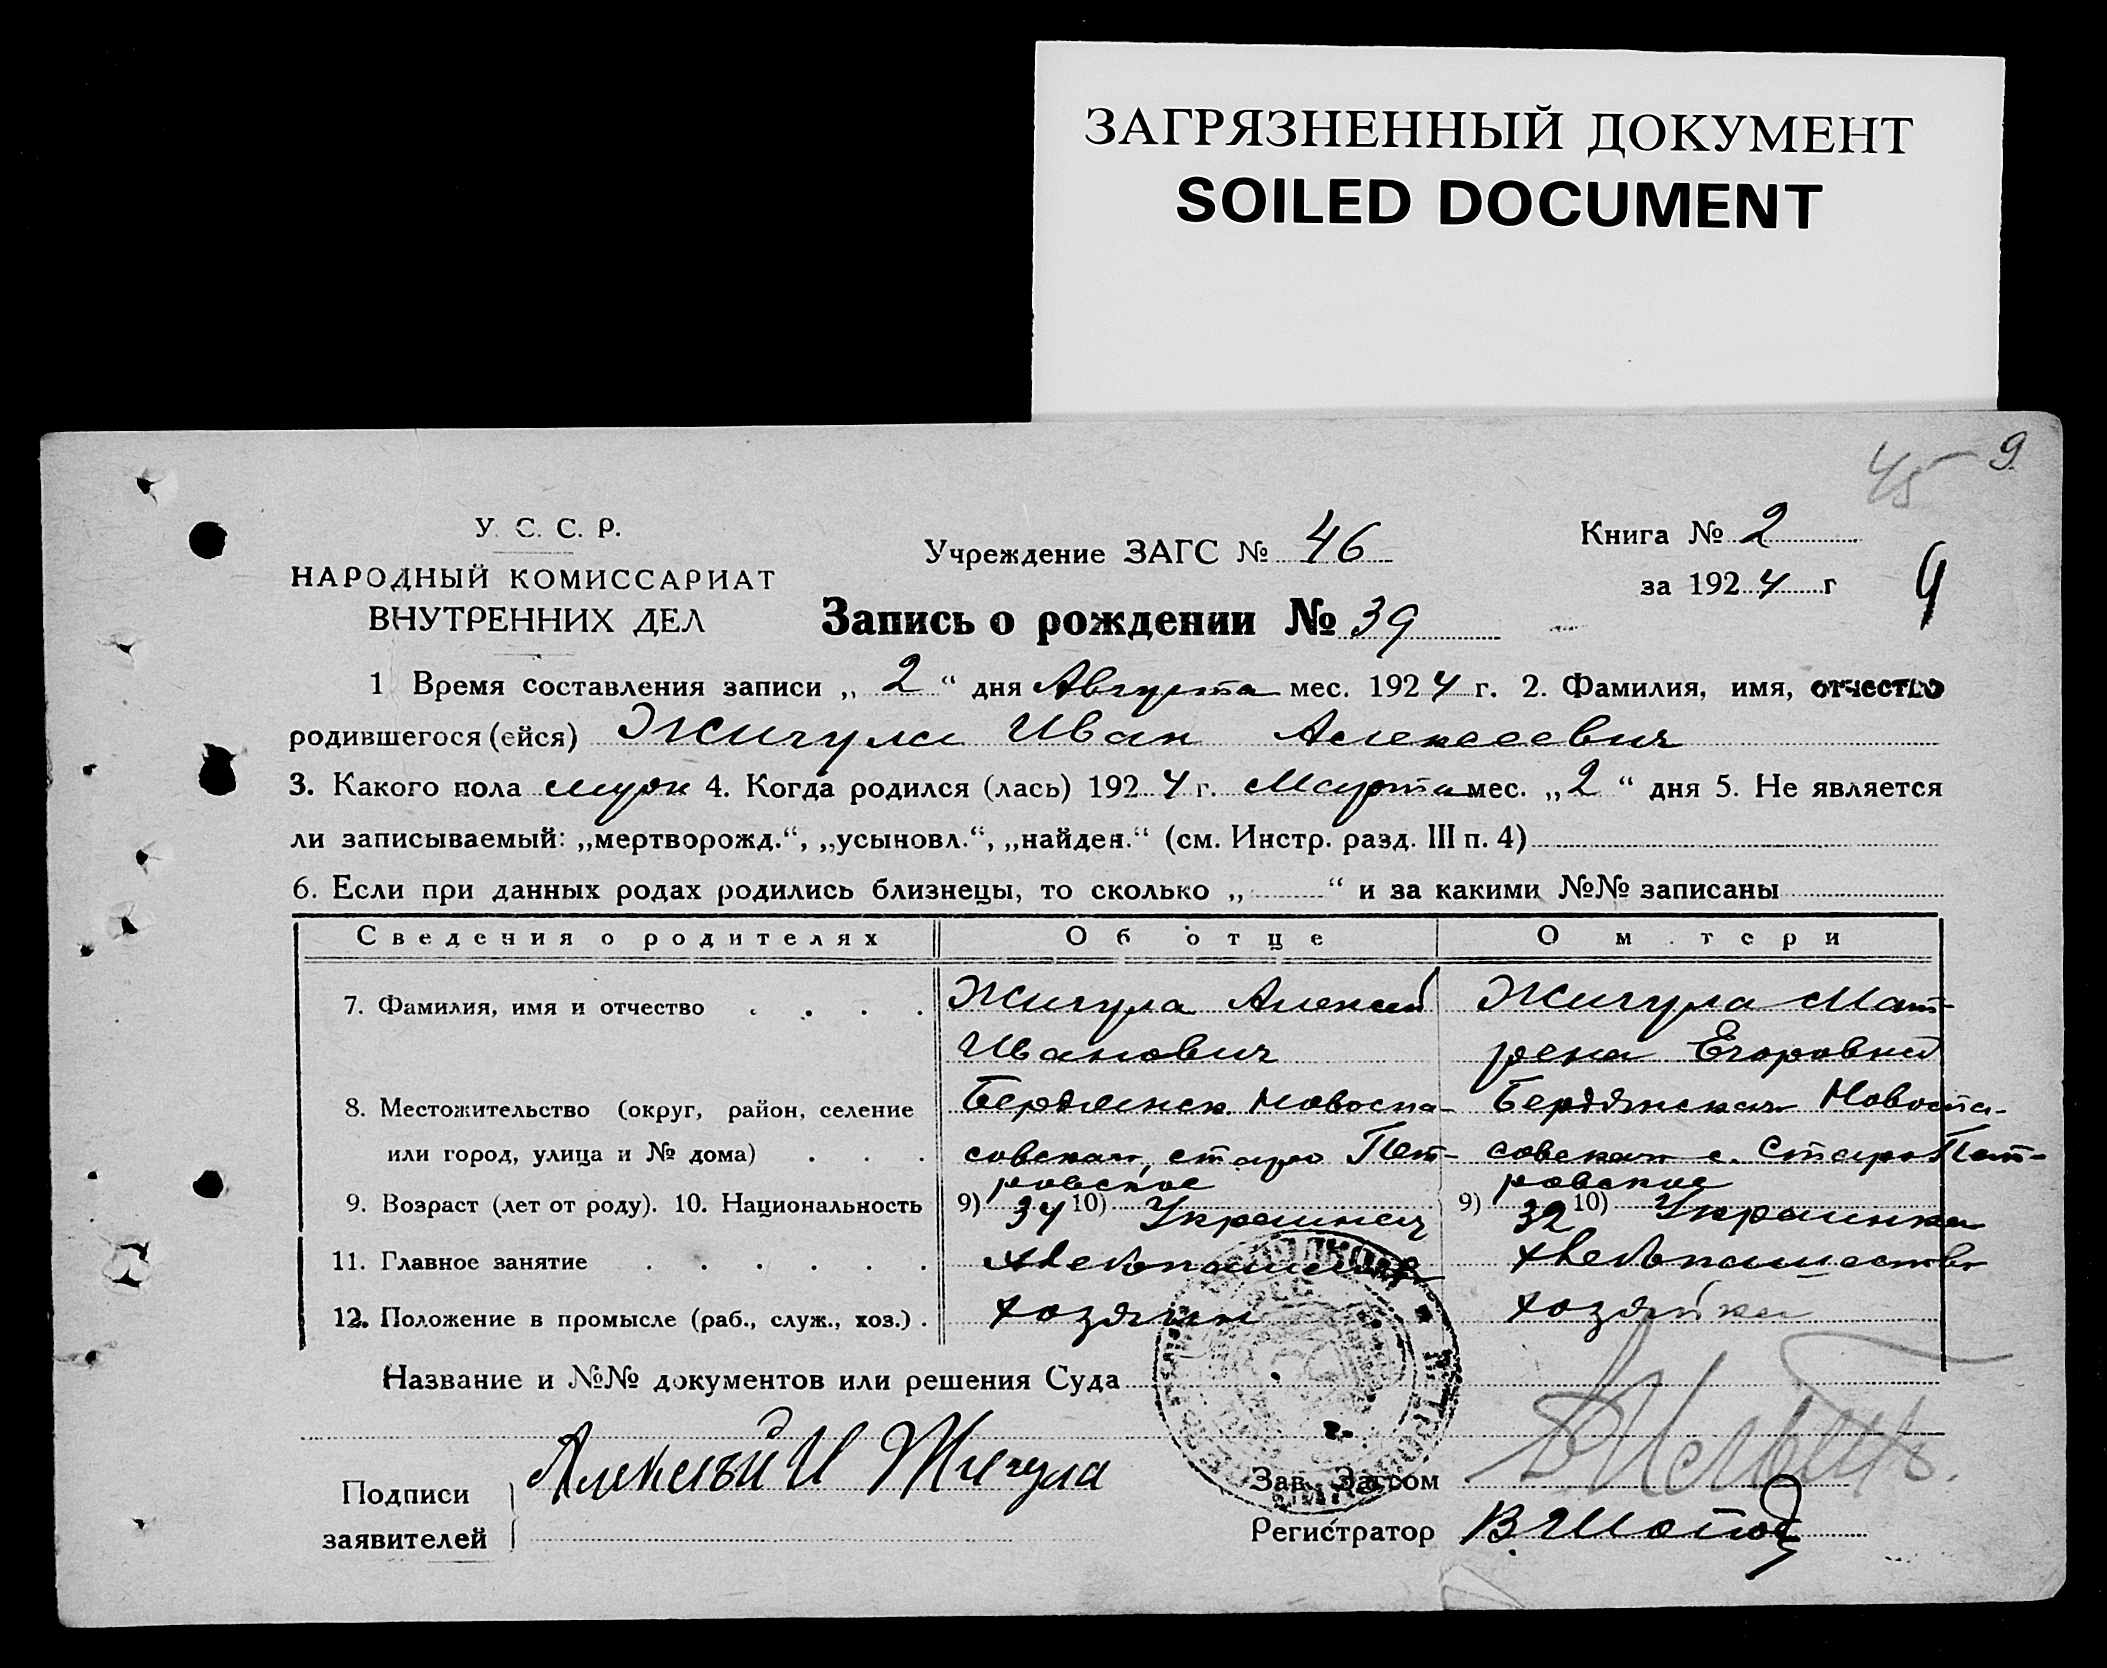 ЗАГРЯЗНЕННЫЙ ДОКУМЕНТ
SOILED DOCUMENT
45 9
У. С. С. Р.
НАРОДНЫЙ КОМИССАРИАТ
ВНУТРЕННИХ ДЕЛ
Учреждение ЗАГС № 46
Книга № 2
за 1924 г
9
Запись о рождении № 39
1 Время составления записи „2“ дня Августа мес. 1924 г. 2. Фамилия, имя, отчество
родившегося (ейся) Жигула Иван Алексеевич
3. Какого пола муж 4. Когда родился (лась) 1924 г. Марта мес. „2“ дня 5. Не является
ли записываемый: „мертворожд.“, „усыновл.“, „найден.“ (см. Инстр. разд. III п. 4)
6. Если при данных родах родились близнецы, то сколько „ “ и за какими №№ записаны
Сведения о родителях Об отце О м тери
7. Фамилия, имя и отчество . . . . Жигула Алексей Жигула Мат-
Иванович рена Егоровна
8. Местожительство (округ, район, селение Бердянск Новоспа- Бердянская Новоспа-
или город, улица и № дома) . . . совская, старо Пет- совская с. Старо Пет-
ровское ровское
9. Возраст (лет от роду). 10. Национальность 9) 34 10) Украинец 9) 32 10) Украинка
11. Главное занятие . . . . . . хлебопашество хлебопашество
12. Положение в промысле (раб., служ., хоз.) . хозяин хозяйка
Название и №№ документов или решения Суда
Подписи заявителей Алексѣй И Жигула
Зав. Загсом
Регистратор В.